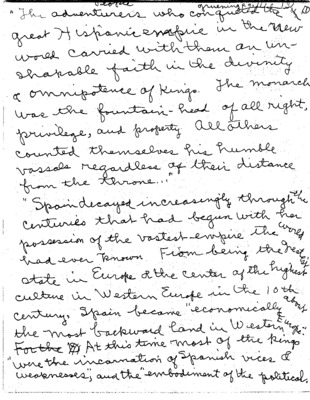 people
"The adventurers who conquered the
great Hispanic empire in the New
World carried with them an un-
shapable faith in the divinity
& omnipotence of kings. The monarch
was the fountain-head of all right,
privilege, and property. All others
counted themselves his humble
vassals regardless of their distance
from the throne..."
"Spain decayed increasingly through the
centuries that had begun with her
possession of the vastest empire the world
had ever known. From being the greatest
state in Europe & the center of the highest
culture in Western Europe in the 10th
century, Spain became "economically about
the most backward land in Western Europe."
For the At this time most of the kings
"were the incarnation of Spanish vices &
weaknesses", and the "embodiment of the political,